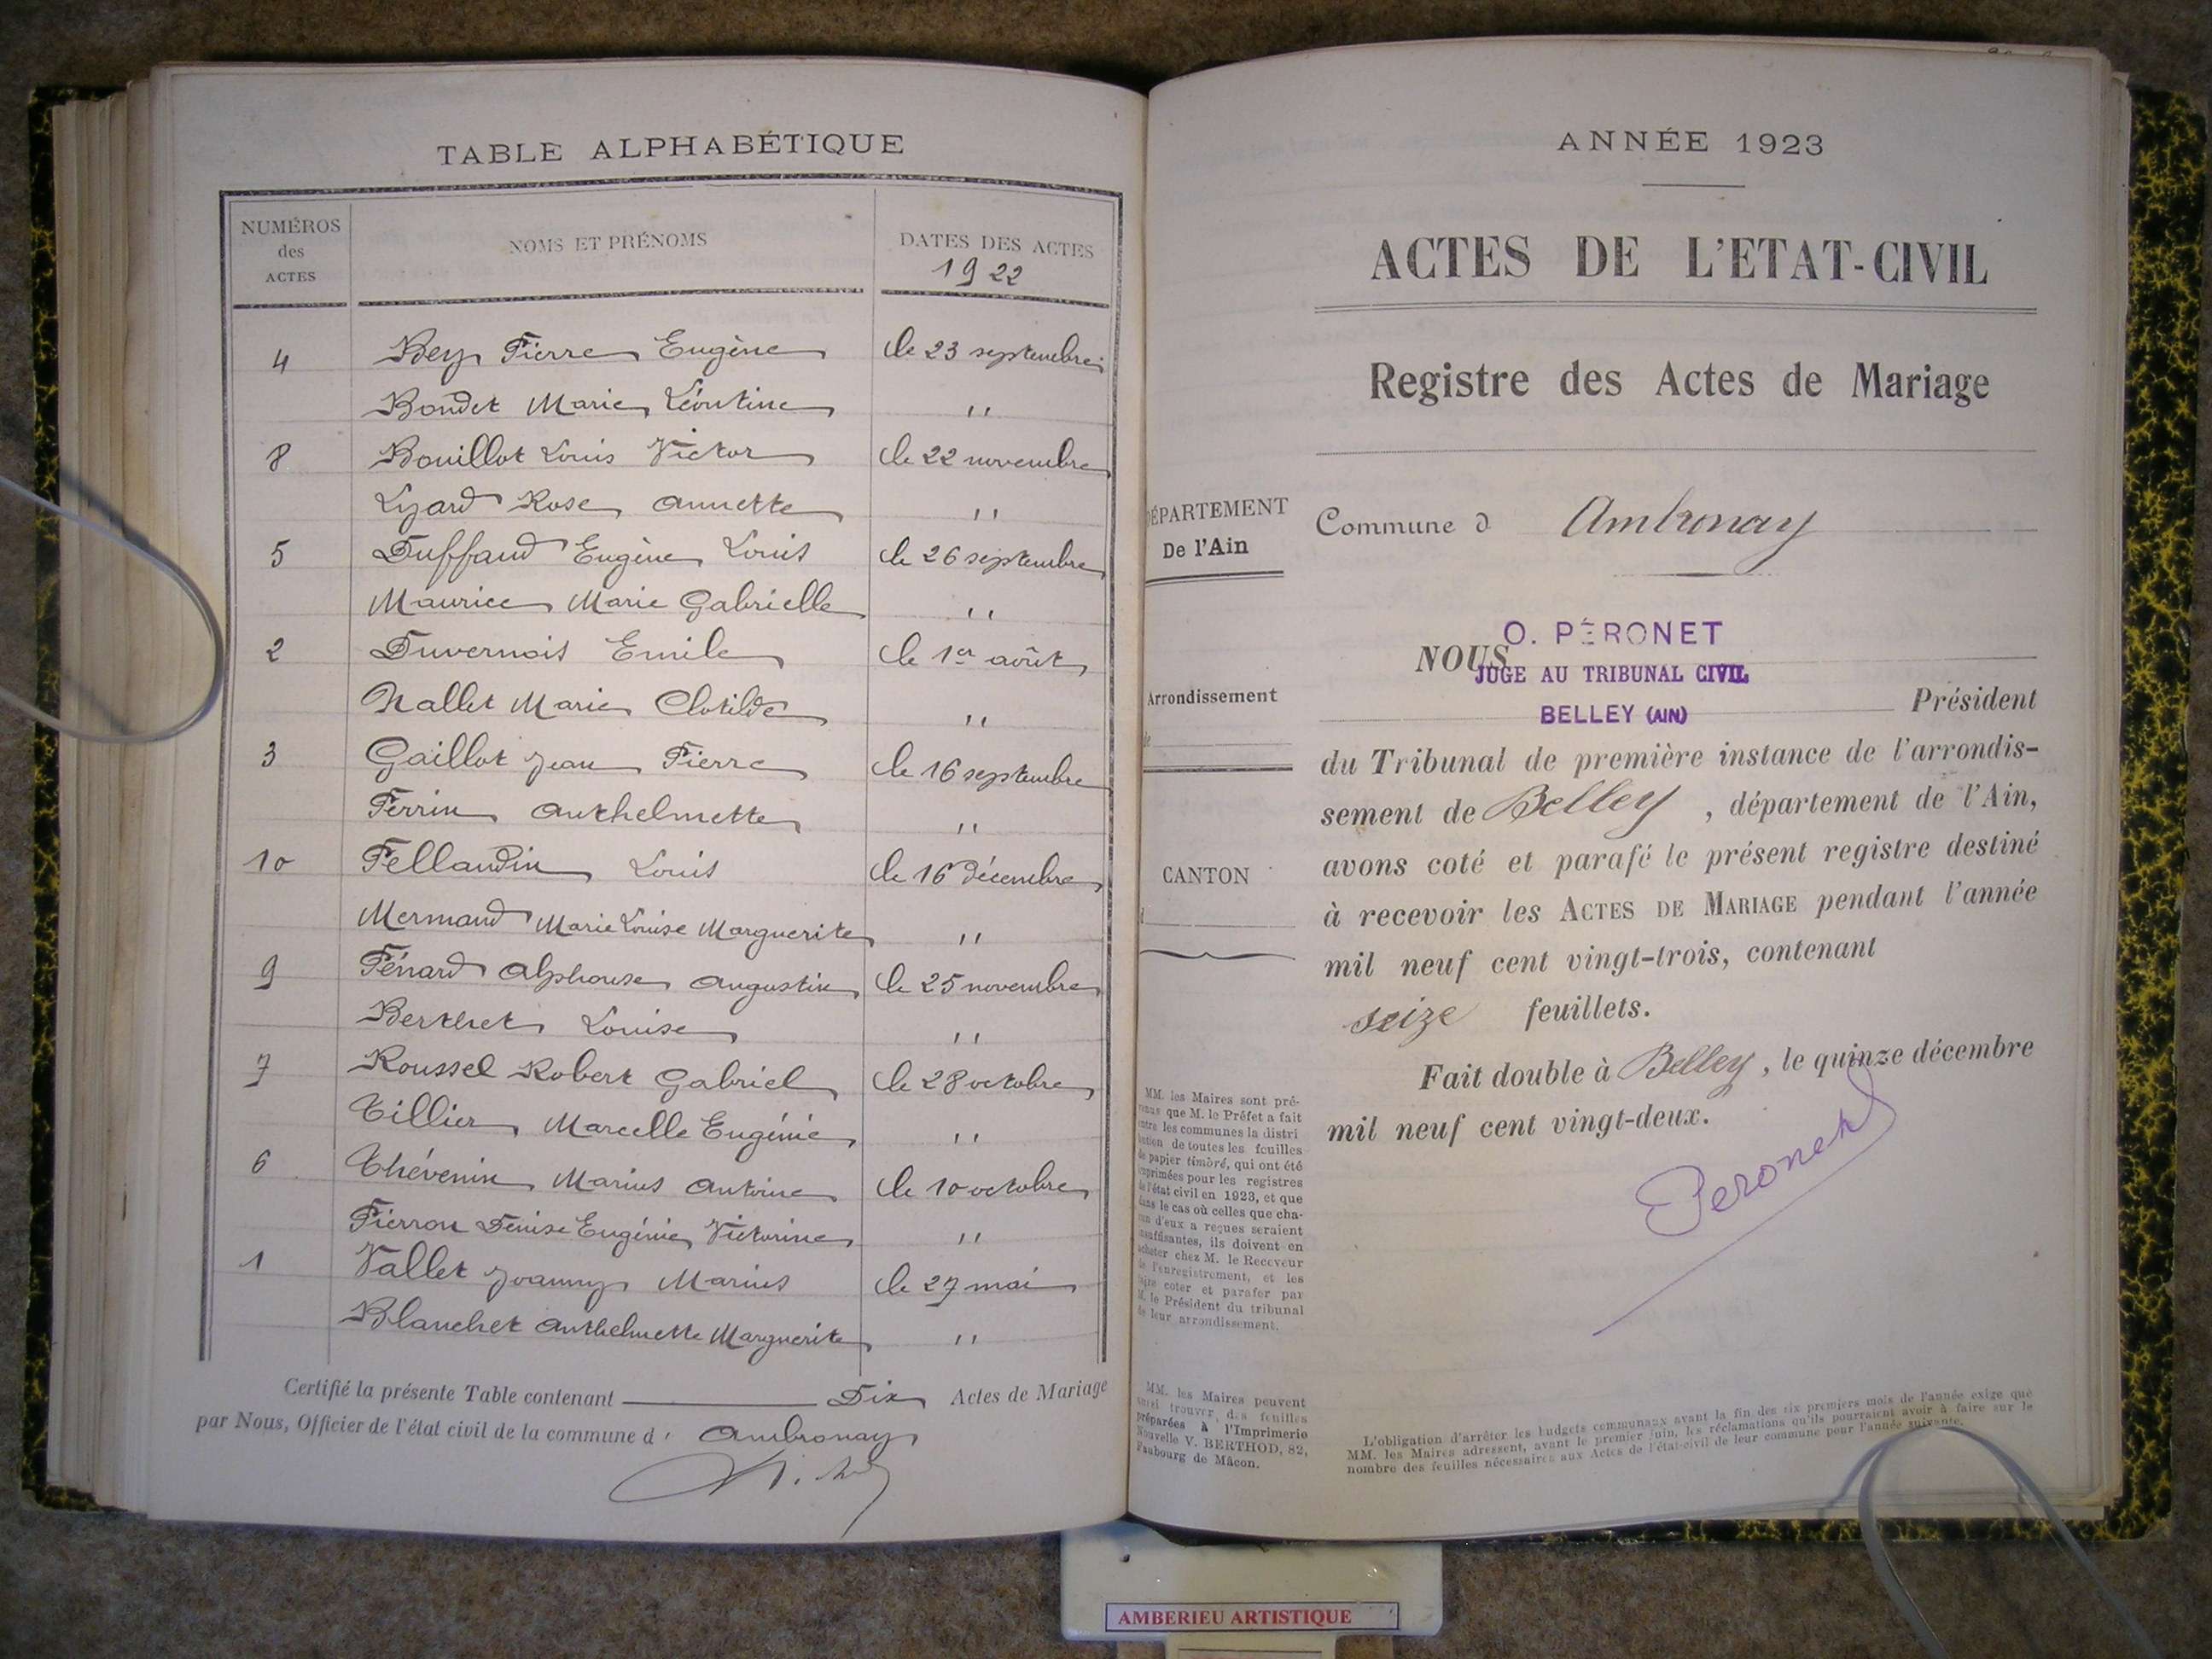 TABLE ALPHABÉTIQUE
NUMÉROS des ACTES
NOMS ET PRÉNOMS
DATES DES ACTES
1922
4 Bey Pierre Eugène le 23 septembre
Bondet Marie Léontine "
8 Bouillot Louis Victor le 22 novembre
Lyard Rose Annette "
5 Duffaud Eugène Louis le 26 septembre
Maurice Marie Gabrielle "
2 Duvernois Emile le 1er août
Nallet Marie Clotilde "
3 Gaillot Jean Pierre le 16 septembre
Perrin Anthelmette "
10 Pellaudin Louis le 16 décembre
Mermand Marie Louise Marguerite "
9 Pénard Alphonse Augustin le 25 novembre
Berthet Louise "
7 Roussel Robert Gabriel le 28 octobre
Tillier Marcelle Eugénie "
6 Thévenin Marius Antoine le 10 octobre
Pierron Denise Eugénie Victorine "
1 Vallet Joanny Marius le 27 mai
Blanchet Anthelmette Marguerite "
Certifié la présente Table contenant Dix Actes de Mariage
par Nous, Officier de l'état civil de la commune d' Ambronay
ANNÉE 1923
ACTES DE L'ETAT-CIVIL
Registre des Actes de Mariage
DÉPARTEMENT
De l'Ain
Commune d Ambronay
Arrondissement
de
CANTON
d
O. PÉRONET
NOUS
JUGE AU TRIBUNAL CIVIL
BELLEY (AIN)
Président
du Tribunal de première instance de l'arrondis-
sement de Belley, département de l'Ain,
avons coté et parafé le présent registre destiné
à recevoir les ACTES DE MARIAGE pendant l'année
mil neuf cent vingt-trois, contenant
seize feuillets.
Fait double à Belley, le quinze décembre
mil neuf cent vingt-deux.
Peronet
MM. les Maires sont pré-
venus que M. le Préfet a fait
entre les communes la distri
bution de toutes les feuilles
de papier timbré, qui ont été
imprimées pour les registres
de l'état civil en 1923, et que
dans le cas où celles que cha-
cun d'eux a reçues seraient
insuffisantes, ils doivent en
acheter chez M. le Receveur
de l'enregistrement, et les
faire coter et parafer par
M. le Président du tribunal
de leur arrondissement.
MM. les Maires peuvent
aussi trouver des feuilles
préparées à l'Imprimerie
Nouvelle V. BERTHOD, 82,
Faubourg de Mâcon.
L'obligation d'arrêter les budgets communaux avant la fin des six premiers mois de l'année exige que
MM. les Maires adressent, avant le premier juin, les réclamations qu'ils pourraient avoir à faire sur le
nombre des feuilles nécessaires aux Actes de l'état-civil de leur commune pour l'année suivante.
AMBERIEU ARTISTIQUE